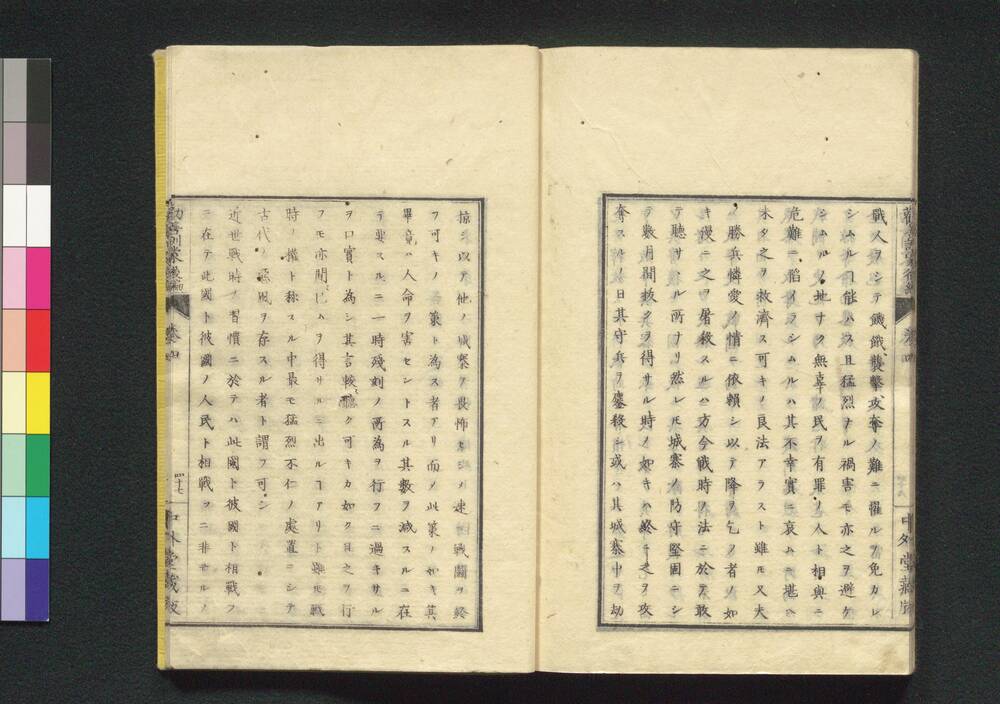 戰人ヲシテ饑餓襲擊攻奪ノ難ニ罹ルヲ免カレ
シムルヿ能ハス且猛烈ナル禍害モ亦之ヲ避ケ
シムルノ地ナク無辜ノ民ヲ有罪ノ人ト相與ニ
危難ニ陷イラシムルハ其不幸實ニ哀ムニ堪ヘ
未タ之ヲ救濟ス可キノ良法アラスト雖モ又夫
ノ勝兵憐愛ノ情ニ依賴シ以テ降ヲ乞フ者ノ如
キ漫ニ之ヲ屠殺スルハ方今戰時ノ法ニ於テ敢
テ聽サヽル所ナリ然レモ城寨ノ防守堅固ニシ
テ數月間拔クヲ得サル時ノ如キハ終ニ之ヲ攻
奪スルノ日其守兵ヲ鏖殺シ或ハ其城寨中ヲ劫
卷四
中外堂藏版
掠シ以テ他ノ城寨ヲ畏怖セシメ速ニ戰鬭ヲ終
フ可キノ策ト為ス者アリ而メ此策ノ如キ其
畢竟ハ人命ヲ害セントスル其數ヲ減スルニ在
テ要スルニ一時殘刻ノ所為ヲ行フニ過キサル
ヲ口實ト為シ其言較聽ク可キカ如ク且之ヲ行
フモ亦間已ムヲ得サルニ出ルヿアリト雖モ戰
時ノ權ト稱スル中最モ猛烈不仁ノ處置ニシテ
古代ノ惡風ヲ存スル者ト謂フ可シ
近世戰時ノ習慣ニ於テハ此國ト彼國ト相戰フ
ニ在テ此國ト彼國ノ人民ト相戰フニ非サルノ
卷四
四十七
中外堂藏版